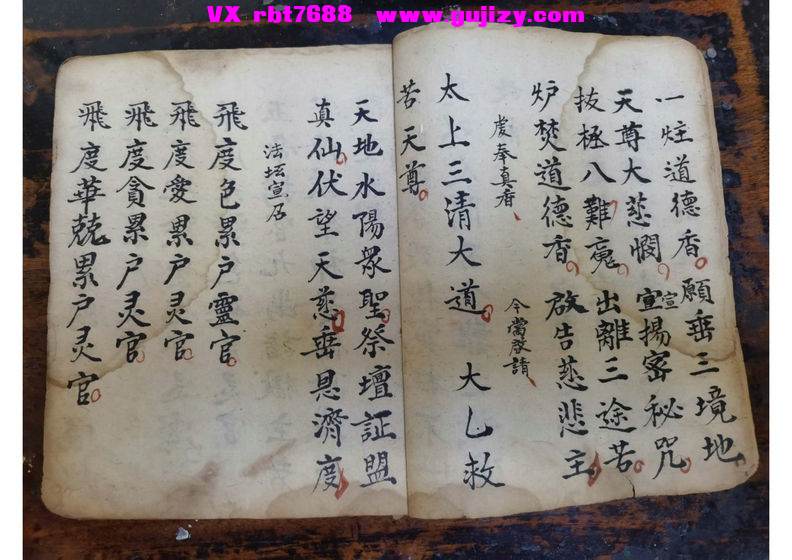 VX rbt7688 www.gujizy.com
一炷道德香願垂三境地
天尊大慈憫宣宣揚密秘咒
拔極八難魂出離三途苦
炉焚道德香啟告慈悲主
虔奉真香今當啓請
太上三清大道大乚救
苦天尊
天地水陽眾聖祭壇証盟
真仙伏望天慈垂恩濟度
法坛宣启
飛度色累户靈官
飛度愛累户灵官
飛度貪累户灵官
飛度華兢累户灵官